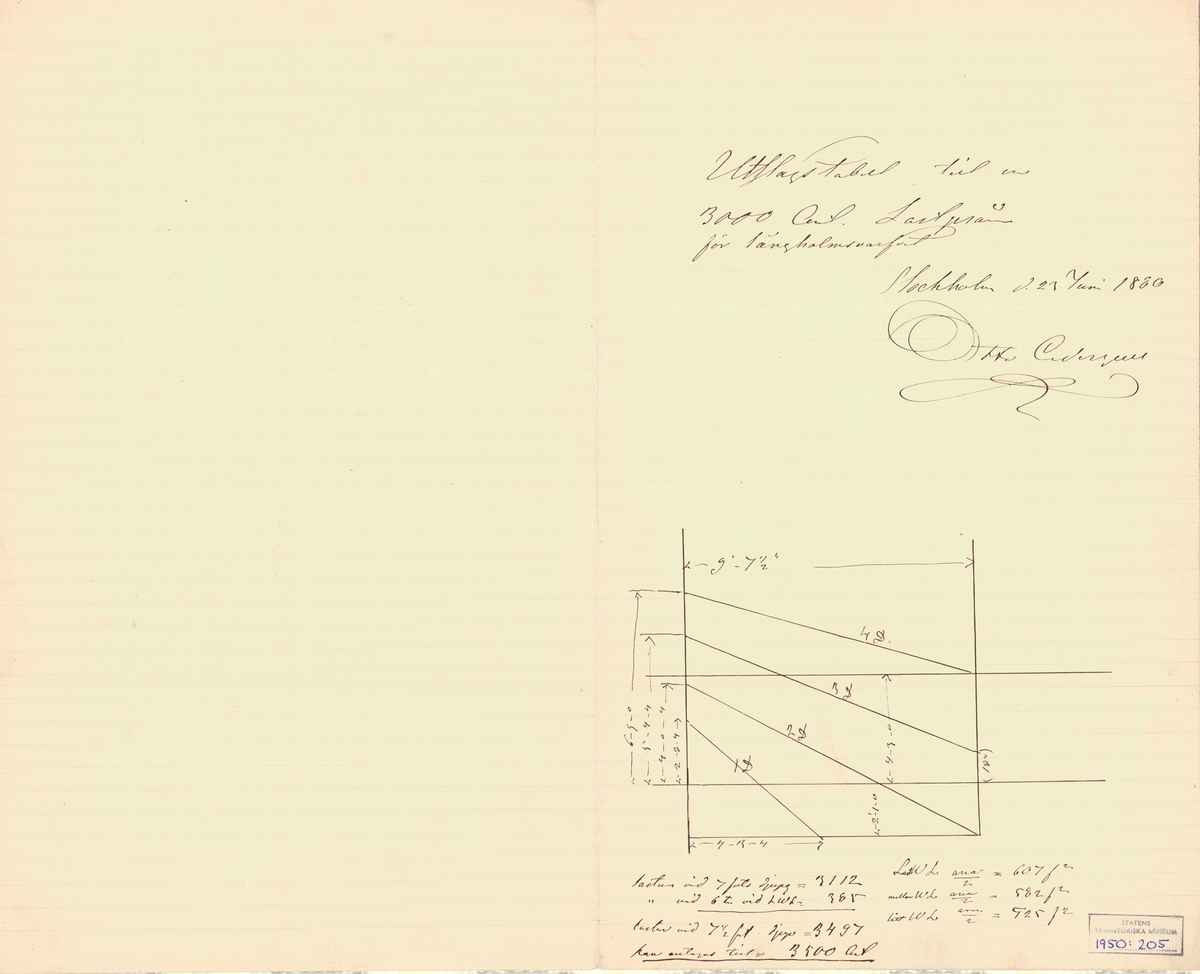 Utslagstabell till en
3000 Cent. Lastpråm
för Långholmsvarfvet
Stockholm d. 23 Juni 1860
Otto Cedergren
9'-7½"
4
3
2
1
6-5-0
5-4-4
4-0-4
2-8-4
4-3-0
2-1-0
(18")
4-3-4
lastar vid 7 fots djupg = 3112
" vid 6 t. vid LWL = 385
lastar vid 7½ fot djupg = 3497
kan antagas till 3500 Cent
LastWL area/2 = 607 f²
mellan WL area/2 = 582 f²
lätt WL area/2 = 525 f²
STATENS
SJÖHISTORISKA MUSEUM
1950: 205